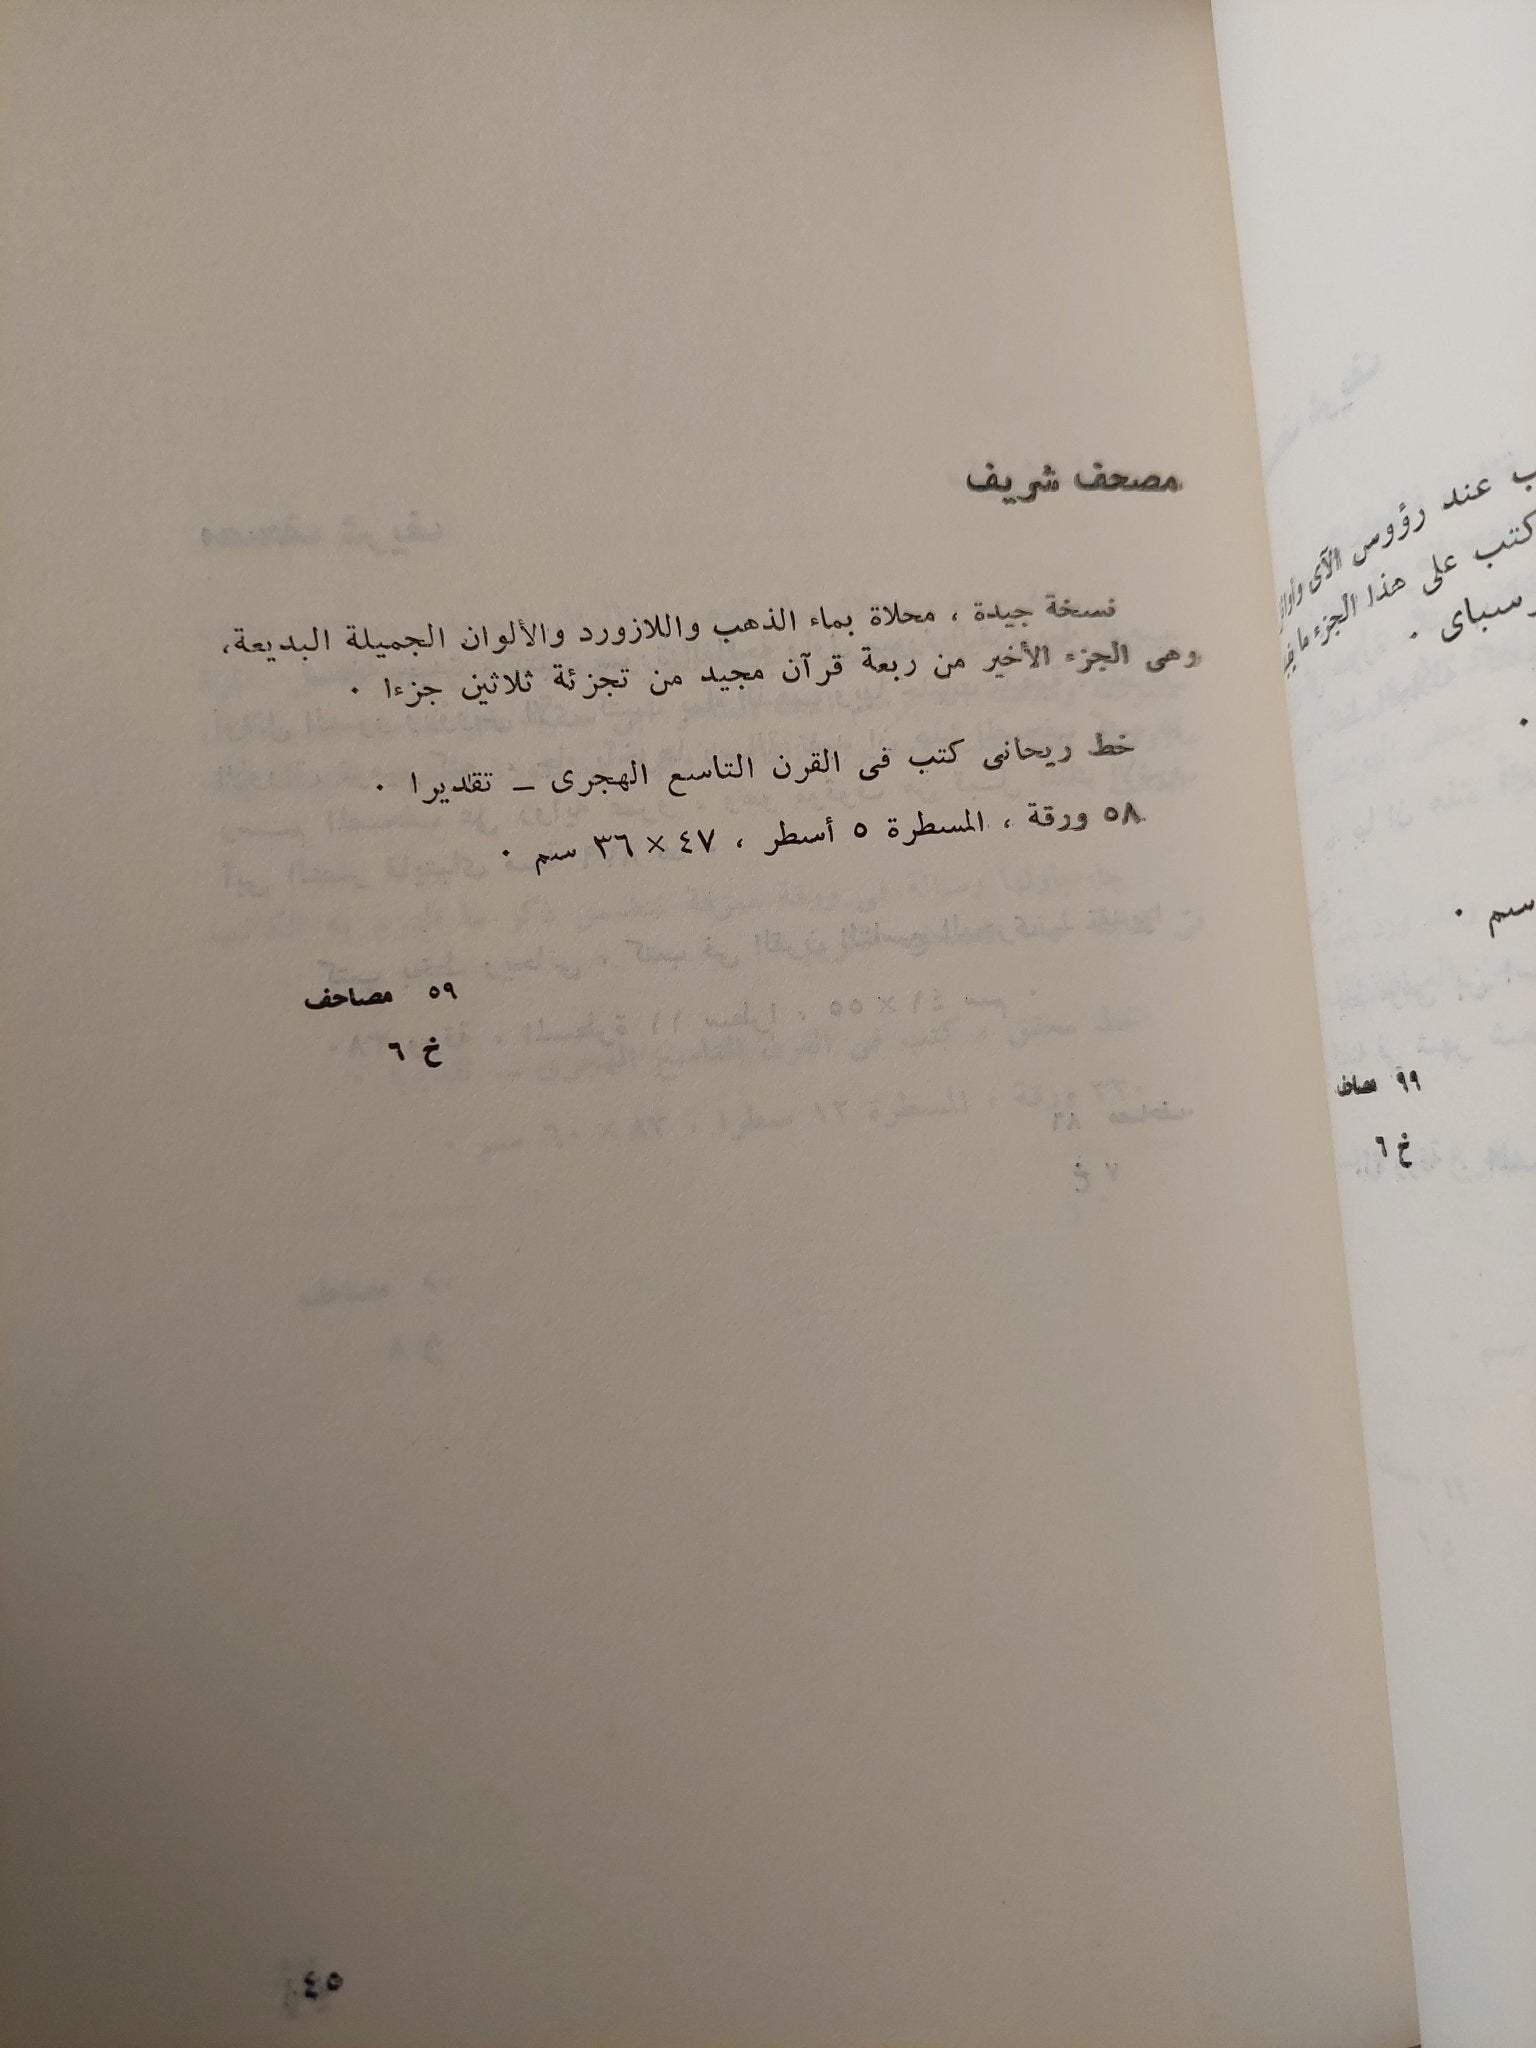 مصحف شريف
نسخة جيدة ، محلاة بماء الذهب واللازورد والألوان الجميلة البديعة،
وهى الجزء الأخير من ربعة قرآن مجيد من تجزئة ثلاثين جزءا ٠
خط ريحانى كتب فى القرن التاسع الهجرى ــ تقديرا ٠
٥٨ ورقة ، المسطرة ٥ أسطر ، ٤٧ × ٣٦ سم ٠
٥٩ مصاحف
خ ٦
٤٥
عند رؤوس الآى
كتب على هذا الجزء ما
سم ٠
٩٩
خ ٦